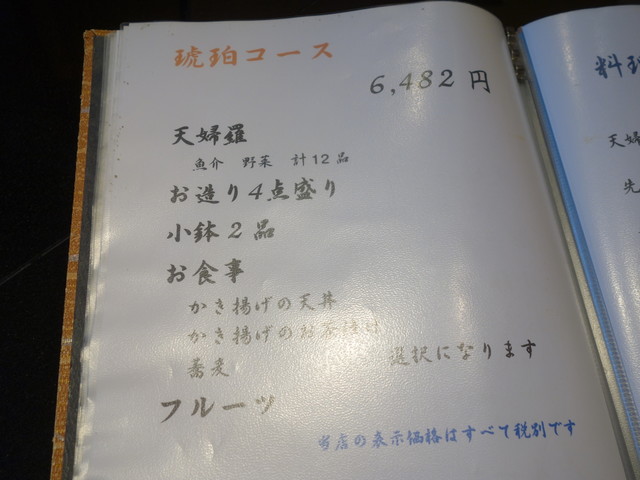 琥珀コース
6,482 円
天婦羅
魚介 野菜 計12品
お造り4点盛り
小鉢2品
お食事
かき揚げの天丼
かき揚げのお茶漬け
蕎麦 選択になります
フルーツ
当店の表示価格はすべて税別です
天婦
先